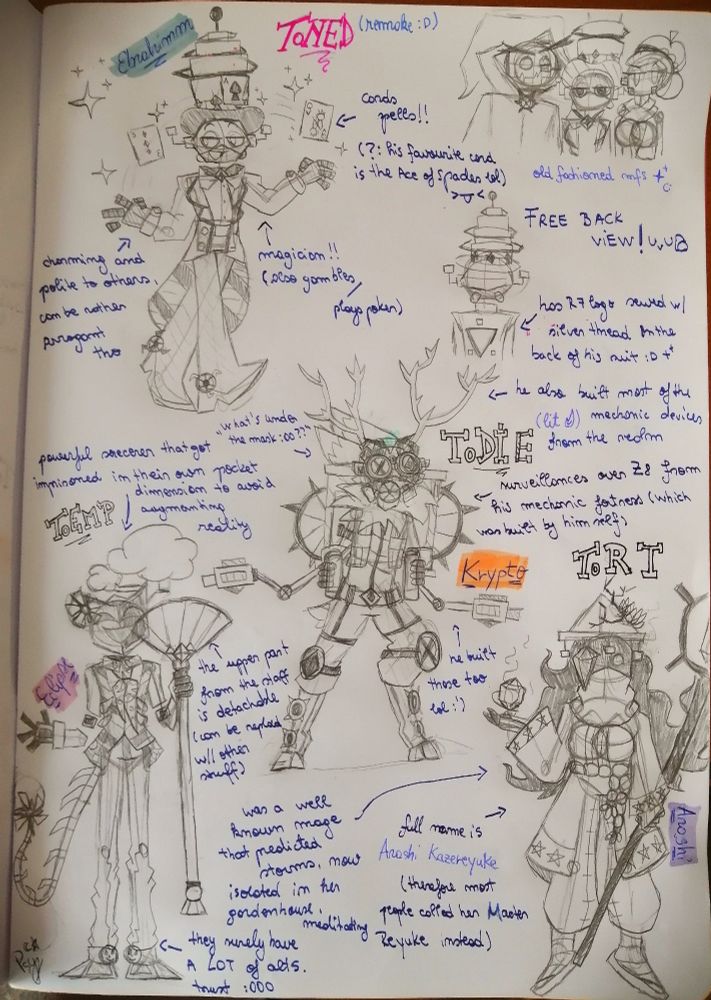 Ebrahimm
TONED (remake :D)
cards
spells!!
(?: his favourite card
is the Ace of Spades lol)
>~<
old fashioned mfs
FREE BACK
VIEW! UwUB
charming and
polite to others,
can be rather
arrogant
tho
magician!!
(also gambles/
plays poker)
has R7 logo sewed w/
silver thread on the
back of his suit :D
he also built most of the
(lit) mechanic devices
from the realm
"what's under
the mask :00??"
TODIE
surveillances over Z8 from
his mechanic fortress (which
was built by himself)
powerful sorcerer that got
imprisoned in their own pocket
dimension to avoid
augmanting
reality
TOEMP
Krypto
TORT
Elipse
the upper part
from the staff
is detachable
(can be replaced
w/ other
stuff)
he built
those too
lol :')
was a well
known mage
that predicted
storms, now
isolated in her
gardenhouse,
meditating
full name is
Arashi Kazereyuke
(therefore most
people called her Master
Reyuke instead)
Arashi
they surely have
A LOT of alts.
trust :000